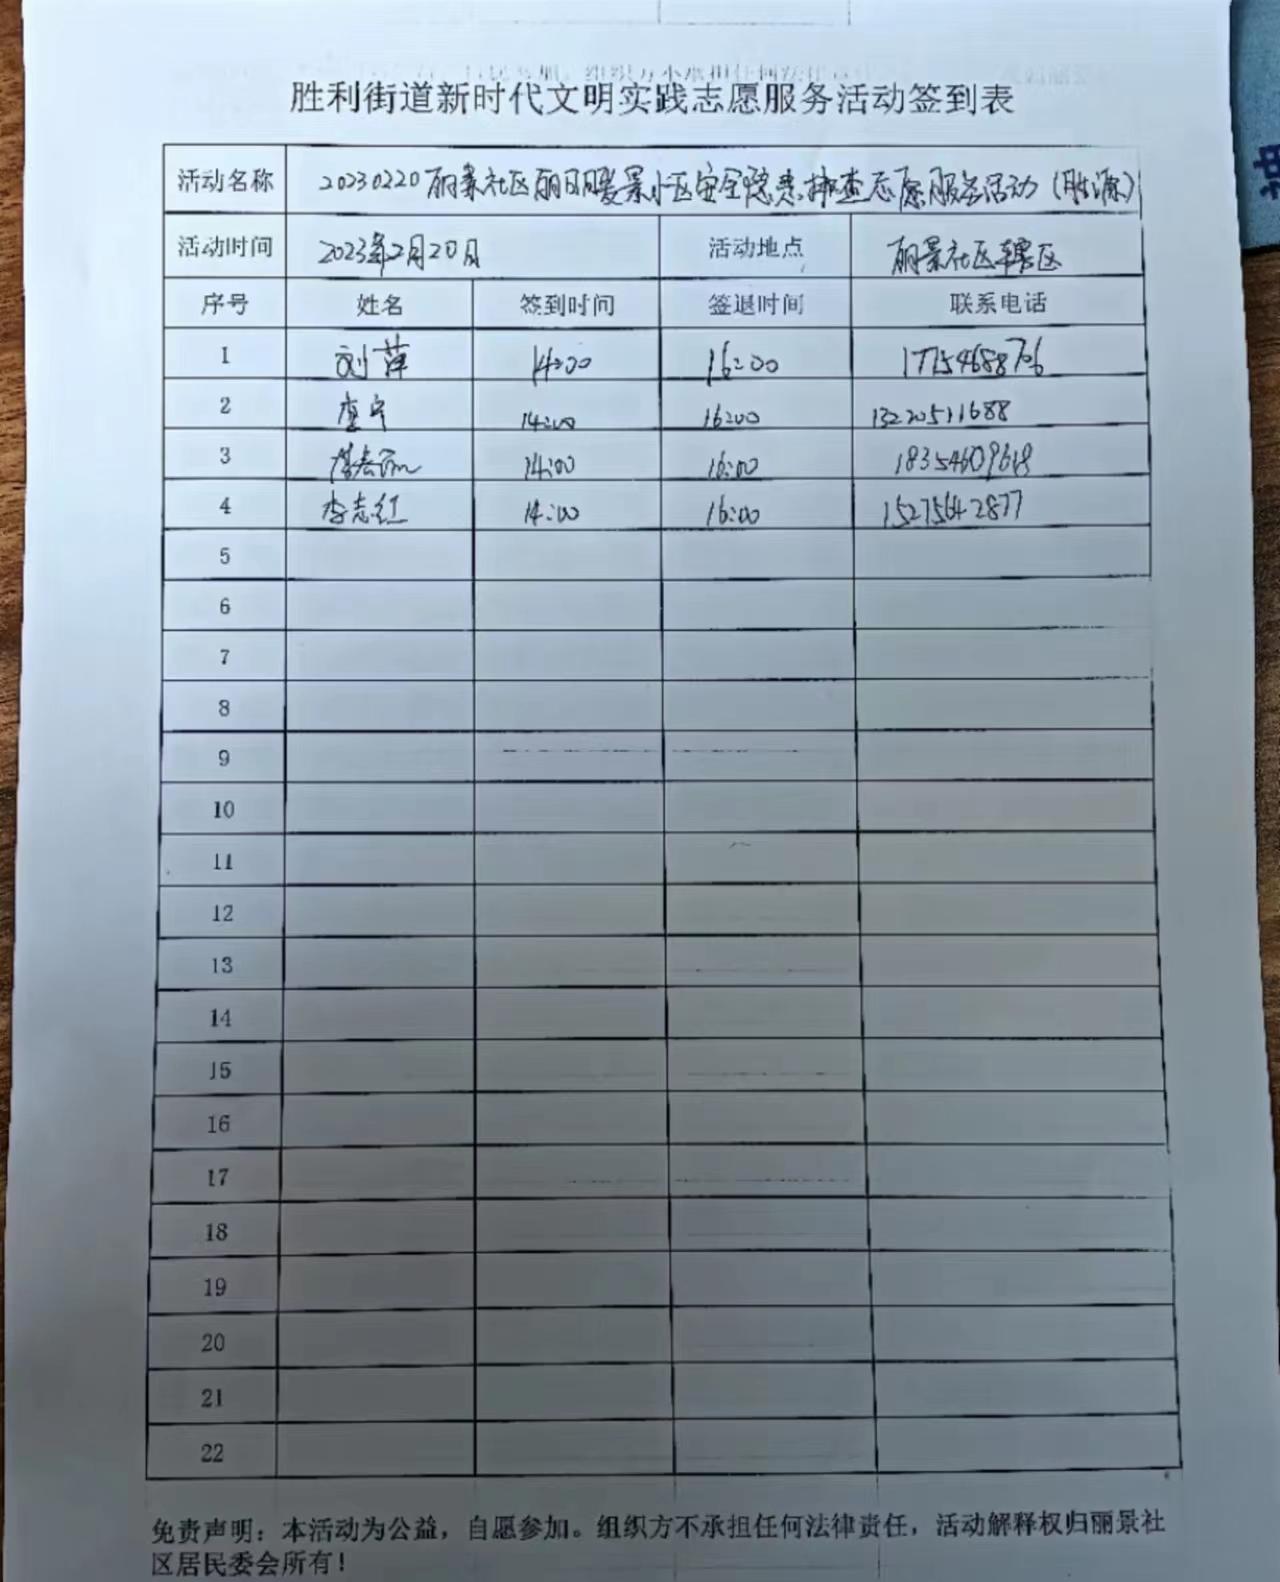 胜利街道新时代文明实践志愿服务活动签到表
活动名称 20230220丽景社区丽日暖景小区安全隐患排查志愿服务活动(胜源)
活动时间 2023年2月20日 活动地点 丽景社区辖区
序号 姓名 签到时间 签退时间 联系电话
1 刘萍 14:00 16:00 17154688706
2 李宁 14:00 16:00 13220511688
3 14:00 16:00 18354609618
4 李志红 14:00 16:00 15275642877
5
6
7
8
9
10
11
12
13
14
15
16
17
18
19
20
21
22
免责声明：本活动为公益，自愿参加。组织方不承担任何法律责任，活动解释权归丽景社
区居民委会所有！